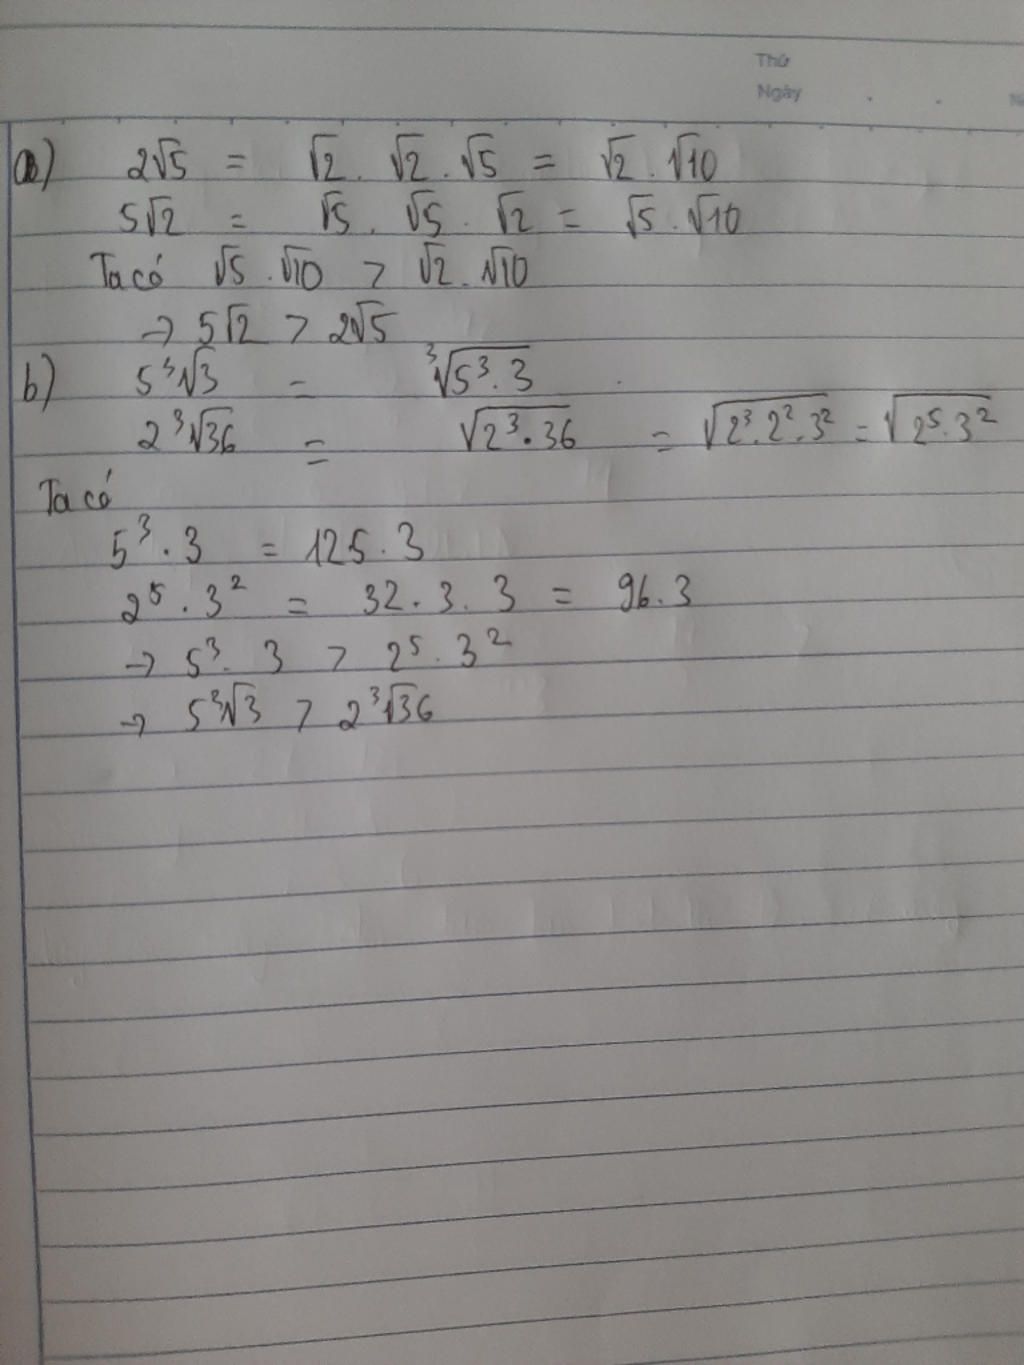 Thứ
Ngày
a) 2√5 = √2 . √2 . √5 = √2 . √10
5√2 = √5 . √5 . √2 = √5 . √10
Ta có √5 . √10 > √2 . √10
→ 5√2 > 2√5
b) 5³√3 = ³√5³ . 3
2³√36 = √2³ . 36 = √2³ . 2² . 3² = √2⁵ . 3²
Ta có
5³ . 3 = 125 . 3
2⁵ . 3² = 32 . 3 . 3 = 96 . 3
→ 5³ . 3 > 2⁵ . 3²
→ 5³√3 > 2³√36